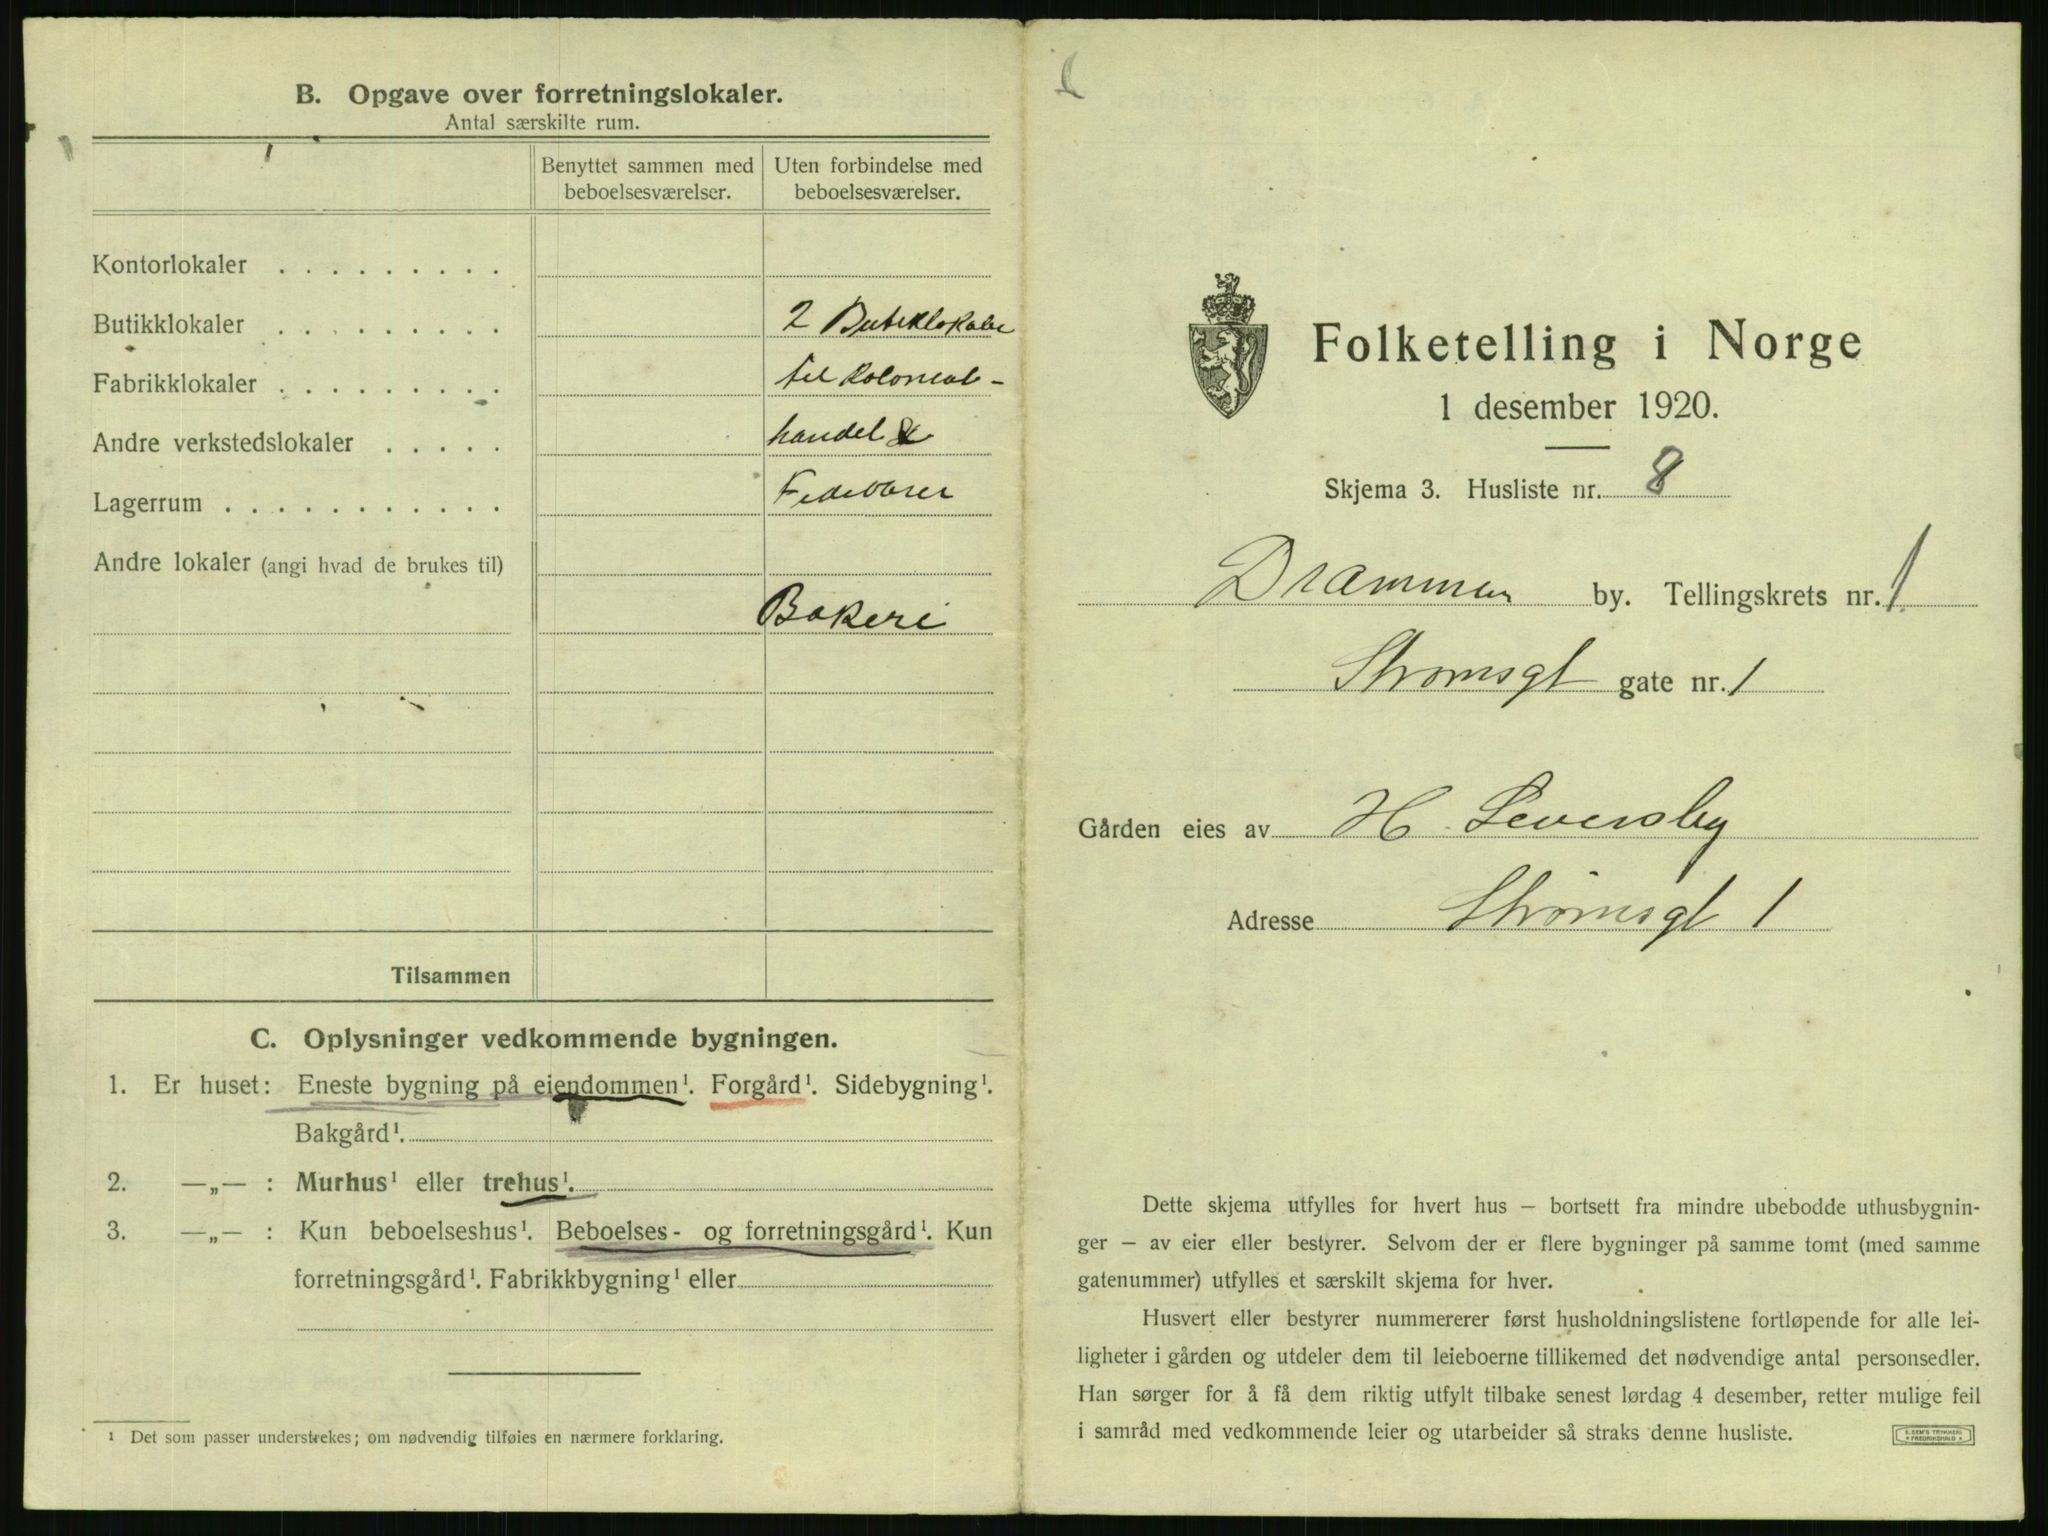 B. Opgave over forretningslokaler.
Antal særskilte rum.
Benyttet sammen med beboelsesværelser.
Uten forbindelse med beboelsesværelser.
Kontorlokaler . . . . . . . . .
Butikklokaler . . . . . . . . . 2 Butiklokaler
Fabrikklokaler . . . . . . . . . til Kolonial-
Andre verkstedslokaler . . . . . handel &
Lagerrum . . . . . . . . . . . . Fedevarer
Andre lokaler (angi hvad de brukes til)
Bakeri
Tilsammen
C. Oplysninger vedkommende bygningen.
1. Er huset: Eneste bygning på eiendommen¹. Forgård¹. Sidebygning¹.
Bakgård¹.
2. —„— : Murhus¹ eller trehus¹.
3. —„— : Kun beboelseshus¹. Beboelses- og forretningsgård¹. Kun
forretningsgård¹. Fabrikkbygning¹ eller
¹ Det som passer understrekes; om nødvendig tilføies en nærmere forklaring.
Folketelling i Norge
1 desember 1920.
Skjema 3. Husliste nr. 8
Drammen by. Tellingskrets nr. 1
Strømsgt gate nr. 1
Gården eies av H. Seversby
Adresse Strømsgt 1
Dette skjema utfylles for hvert hus – bortsett fra mindre ubebodde uthusbygnin-
ger – av eier eller bestyrer. Selvom der er flere bygninger på samme tomt (med samme
gatenummer) utfylles et særskilt skjema for hver.
Husvert eller bestyrer nummererer først husholdningslistene fortløpende for alle lei-
ligheter i gården og utdeler dem til leieboerne tillikemed det nødvendige antal personsedler.
Han sørger for å få dem riktig utfylt tilbake senest lørdag 4 desember, retter mulige feil
i samråd med vedkommende leier og utarbeider så straks denne husliste.
E. SEM'S TRYKKERI
FREDRIKSHALD